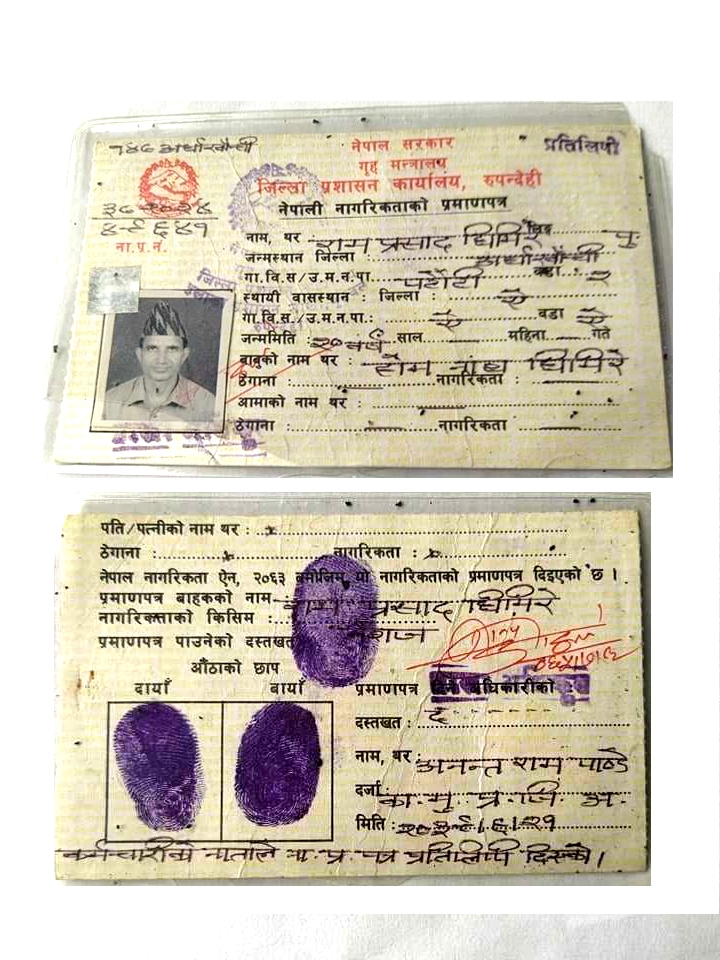 नेपाल सरकार
प्रतिलिपी
गृह मन्त्रालय
जिल्ला प्रशासन कार्यालय, रुपन्देही
नेपाली नागरिकताको प्रमाणपत्र
ना.प्र.नं.
नाम, थर : राम प्रसाद घिमिरे लिङ्ग पु.
जन्मस्थान जिल्ला : अर्घाखाँची
गा.वि.स/उ.म.न.पा. वडा : २
स्थायी वासस्थान : जिल्ला : ऐ
गा.वि.स./उ.म.न.पा.: ऐ वडा ऐ
जन्ममिति : २० वर्ष साल महिना गते
बाबुको नाम थर : होम नाथ घिमिरे
ठेगाना : नागरिकता :
आमाको नाम थर :
ठेगाना : नागरिकता :
पति/पत्नीको नाम थर : x
ठेगाना : x नागरिकता : x
नेपाल नागरिकता ऐन, २०६३ बमोजिम यो नागरिकताको प्रमाणपत्र दिइएको छ ।
प्रमाणपत्र बाहकको नाम : राम प्रसाद घिमिरे
नागरिकताको किसिम : वंशज
प्रमाणपत्र पाउनेको दस्तखत
औंठाको छाप
दायाँ बायाँ
प्रमाणपत्र दिने अधिकारीको :
दस्तखत : द.
नाम, थर : अनन्त राम पाण्डे
दर्जा : का. मु. प्र. जि. अ.
मिति :
कर्मचारीको नाताले ना. प्र. पत्र प्रतिलिपी दिएको ।